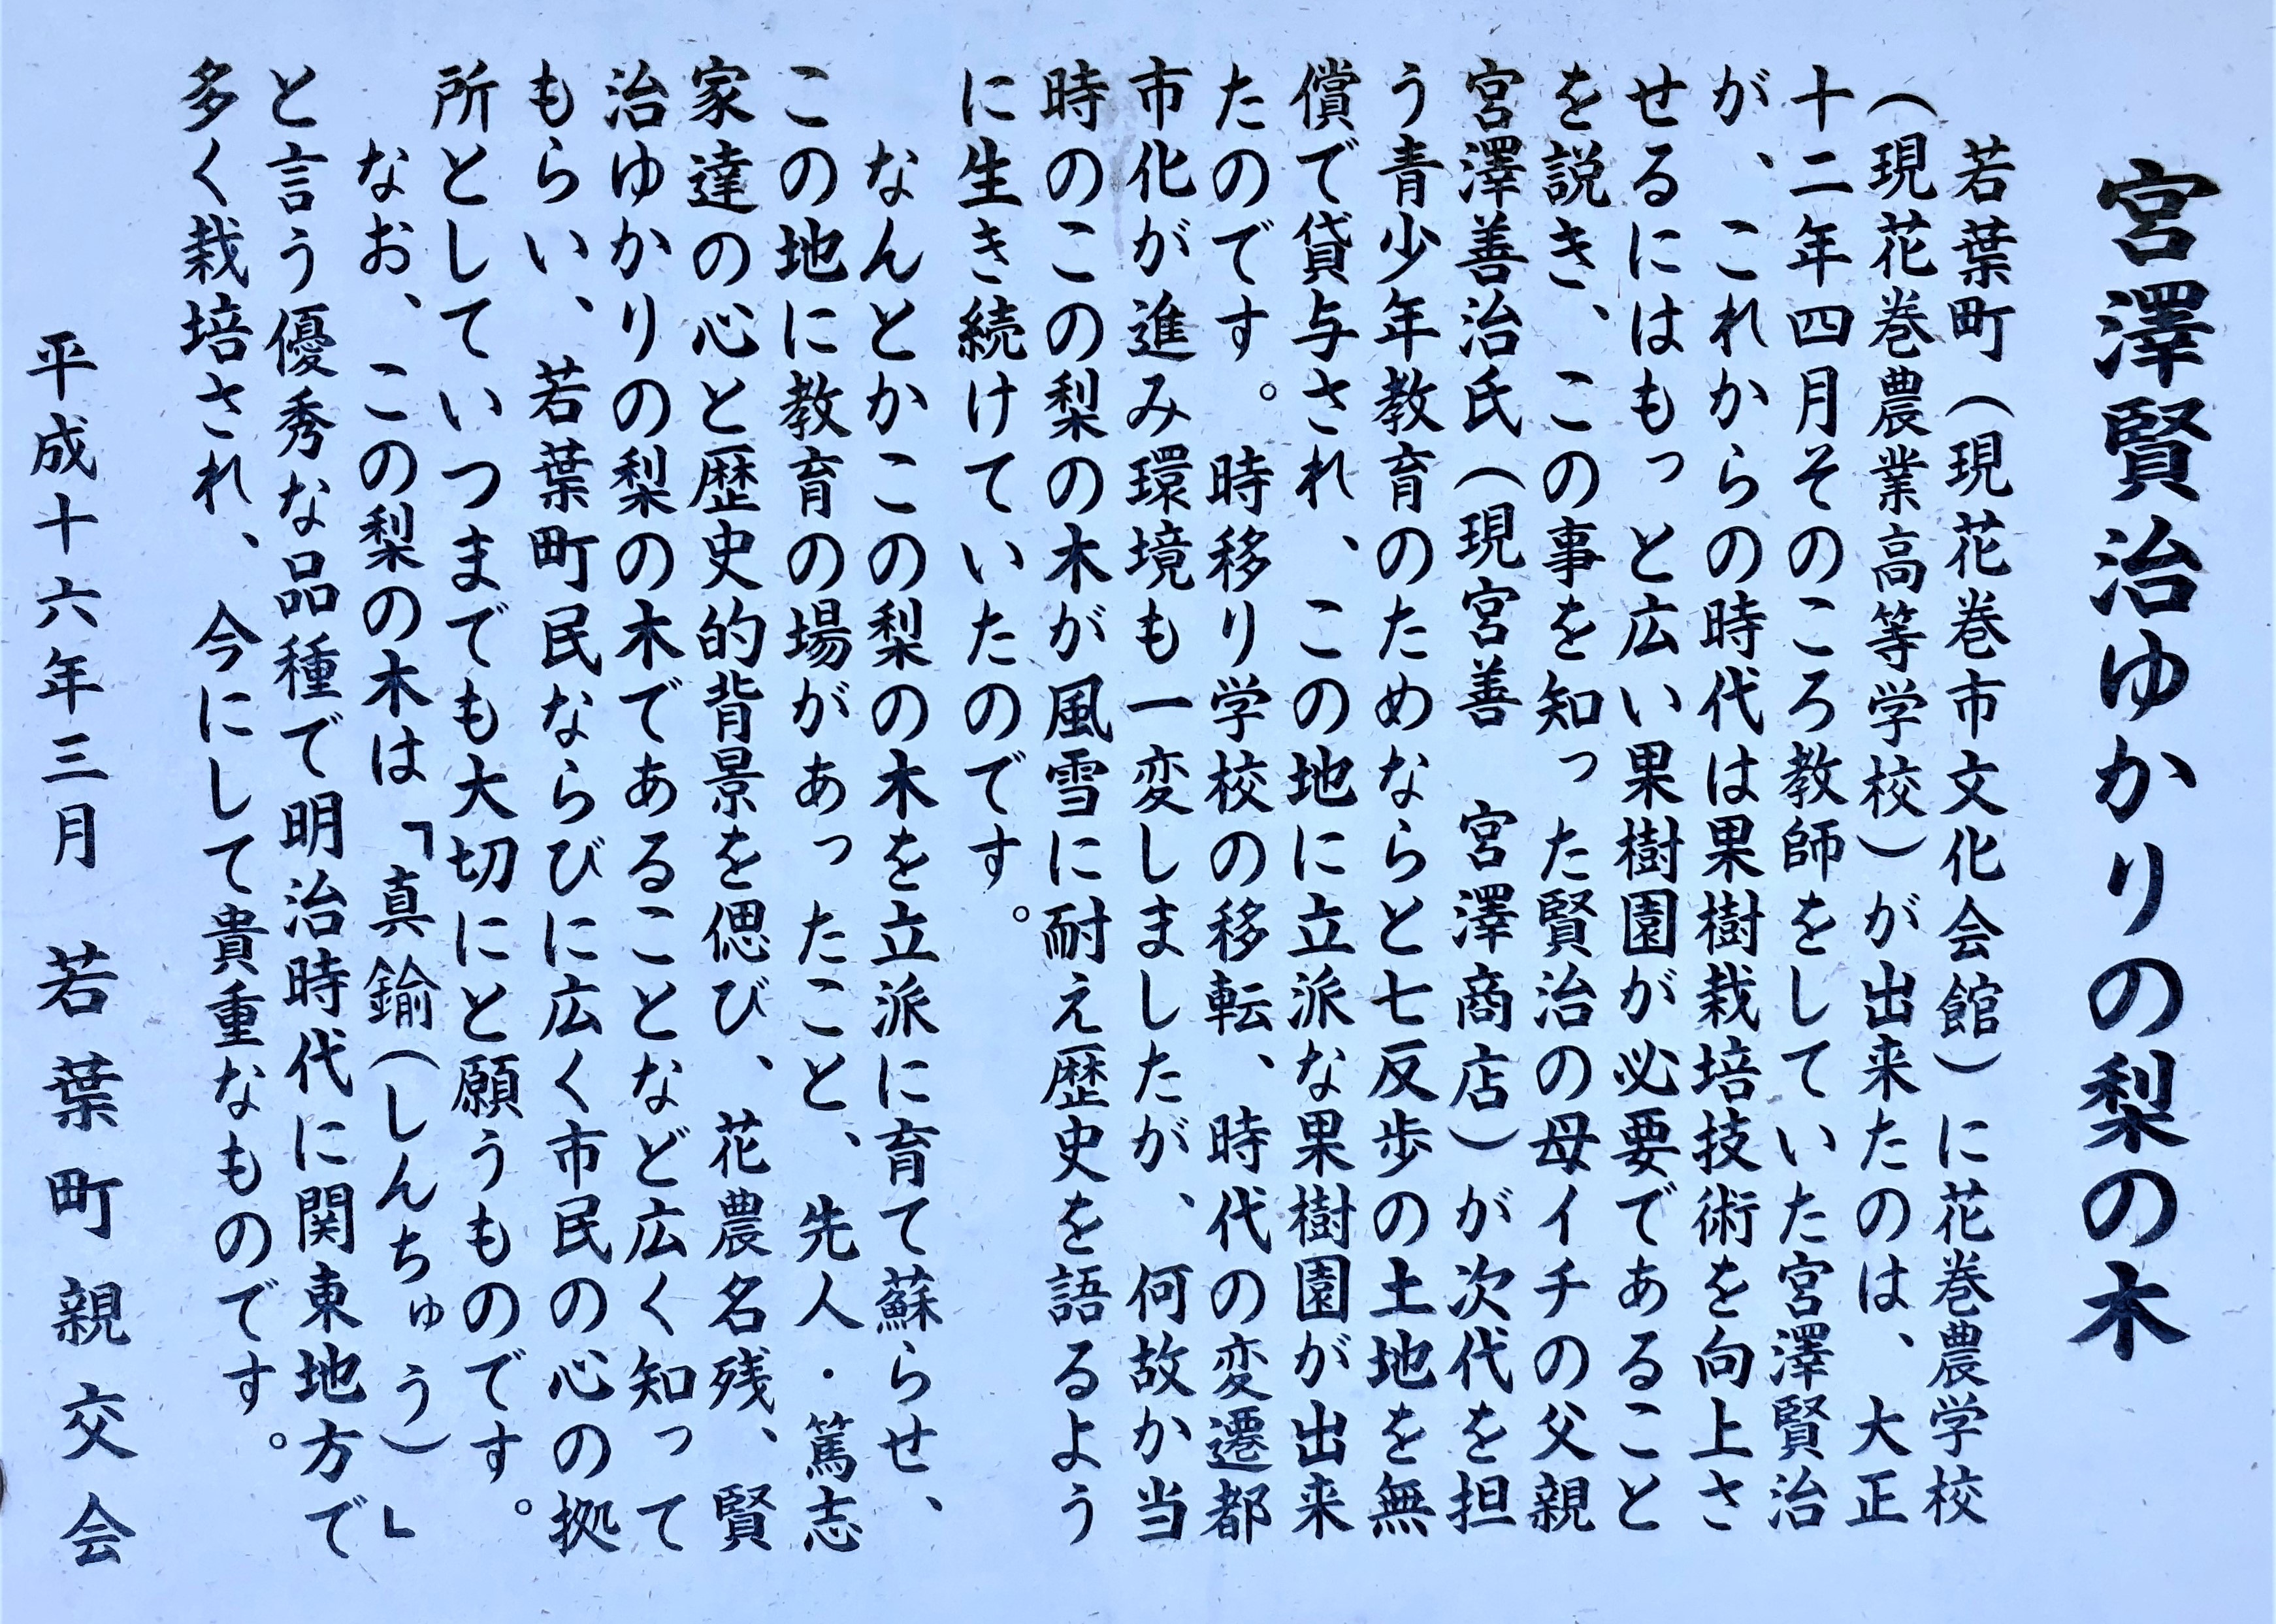 宮澤賢治ゆかりの梨の木
若葉町（現花巻市文化会館）に花巻農学校
（現花巻農業高等学校）が出来たのは、大正
十二年四月そのころ教師をしていた宮澤賢治
が、これからの時代は果樹栽培技術を向上さ
せるにはもっと広い果樹園が必要であること
を説き、この事を知った賢治の母イチの父親
宮澤善治氏（現宮善　宮澤商店）が次代を担
う青少年教育のためならと七反歩の土地を無
償で貸与され、この地に立派な果樹園が出来
たのです。時移り学校の移転、時代の変遷都
市化が進み環境も一変しましたが、何故か当
時のこの梨の木が風雪に耐え歴史を語るよう
に生き続けていたのです。
なんとかこの梨の木を立派に育て蘇らせ、
この地に教育の場があったこと、先人・篤志
家達の心と歴史的背景を偲び、花農名残、賢
治ゆかりの梨の木であることなど広く知って
もらい、若葉町民ならびに広く市民の心の拠
所としていつまでも大切にと願うものです。
なお、この梨の木は「真鍮（しんちゅう）」
と言う優秀な品種で明治時代に関東地方で
多く栽培され、今にして貴重なものです。
平成十六年三月　若葉町親交会